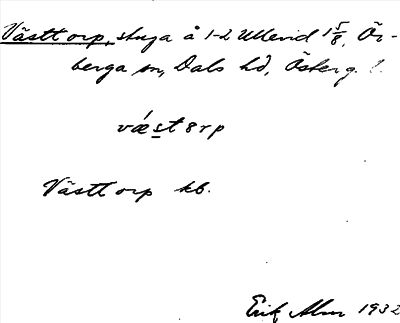 Västtorp, stuga å 1-2 Ullevid 1 5/8, Ör-
berga sn, Dals hd, Österg. l.
vǽstərp
Västtorp kb.
Erik Alm 1932